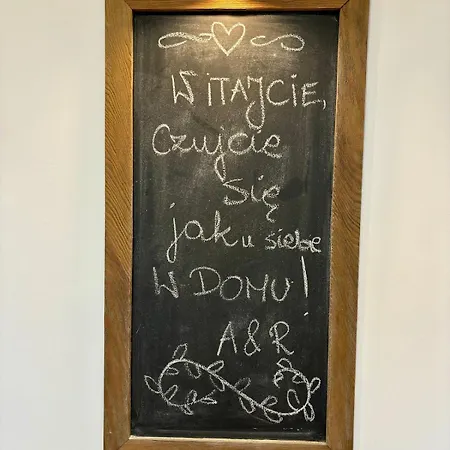 WITAJCIE,
Czujcie
się
jak u siebie
W DOMU!
A&R